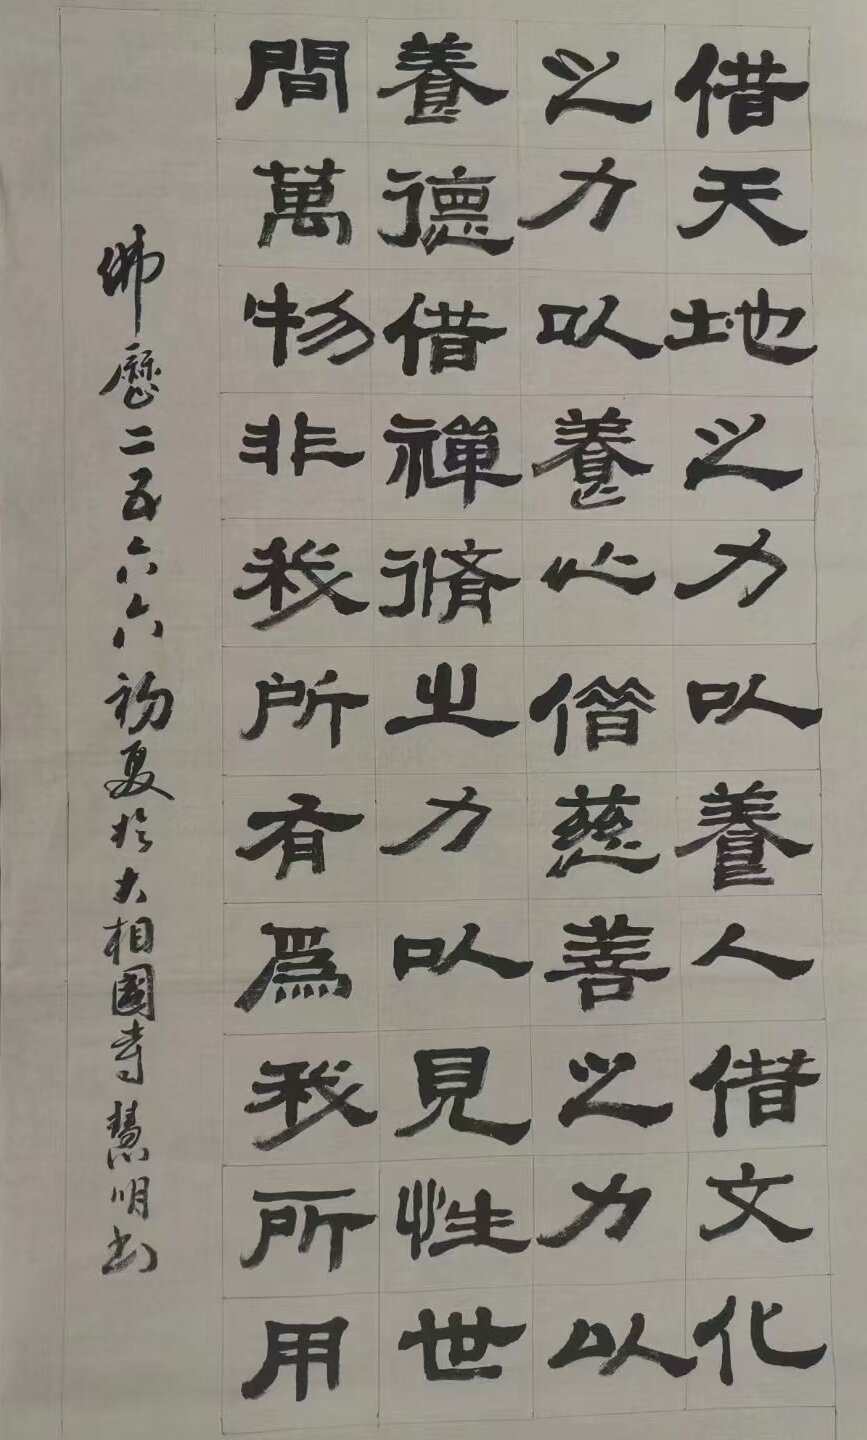 借天地之力以養人借文化
之力以養心借慈善之力以
養德借禪脩之力以見性世
間萬物非我所有為我所用
佛歷二五六六初夏於大相國寺慧明書